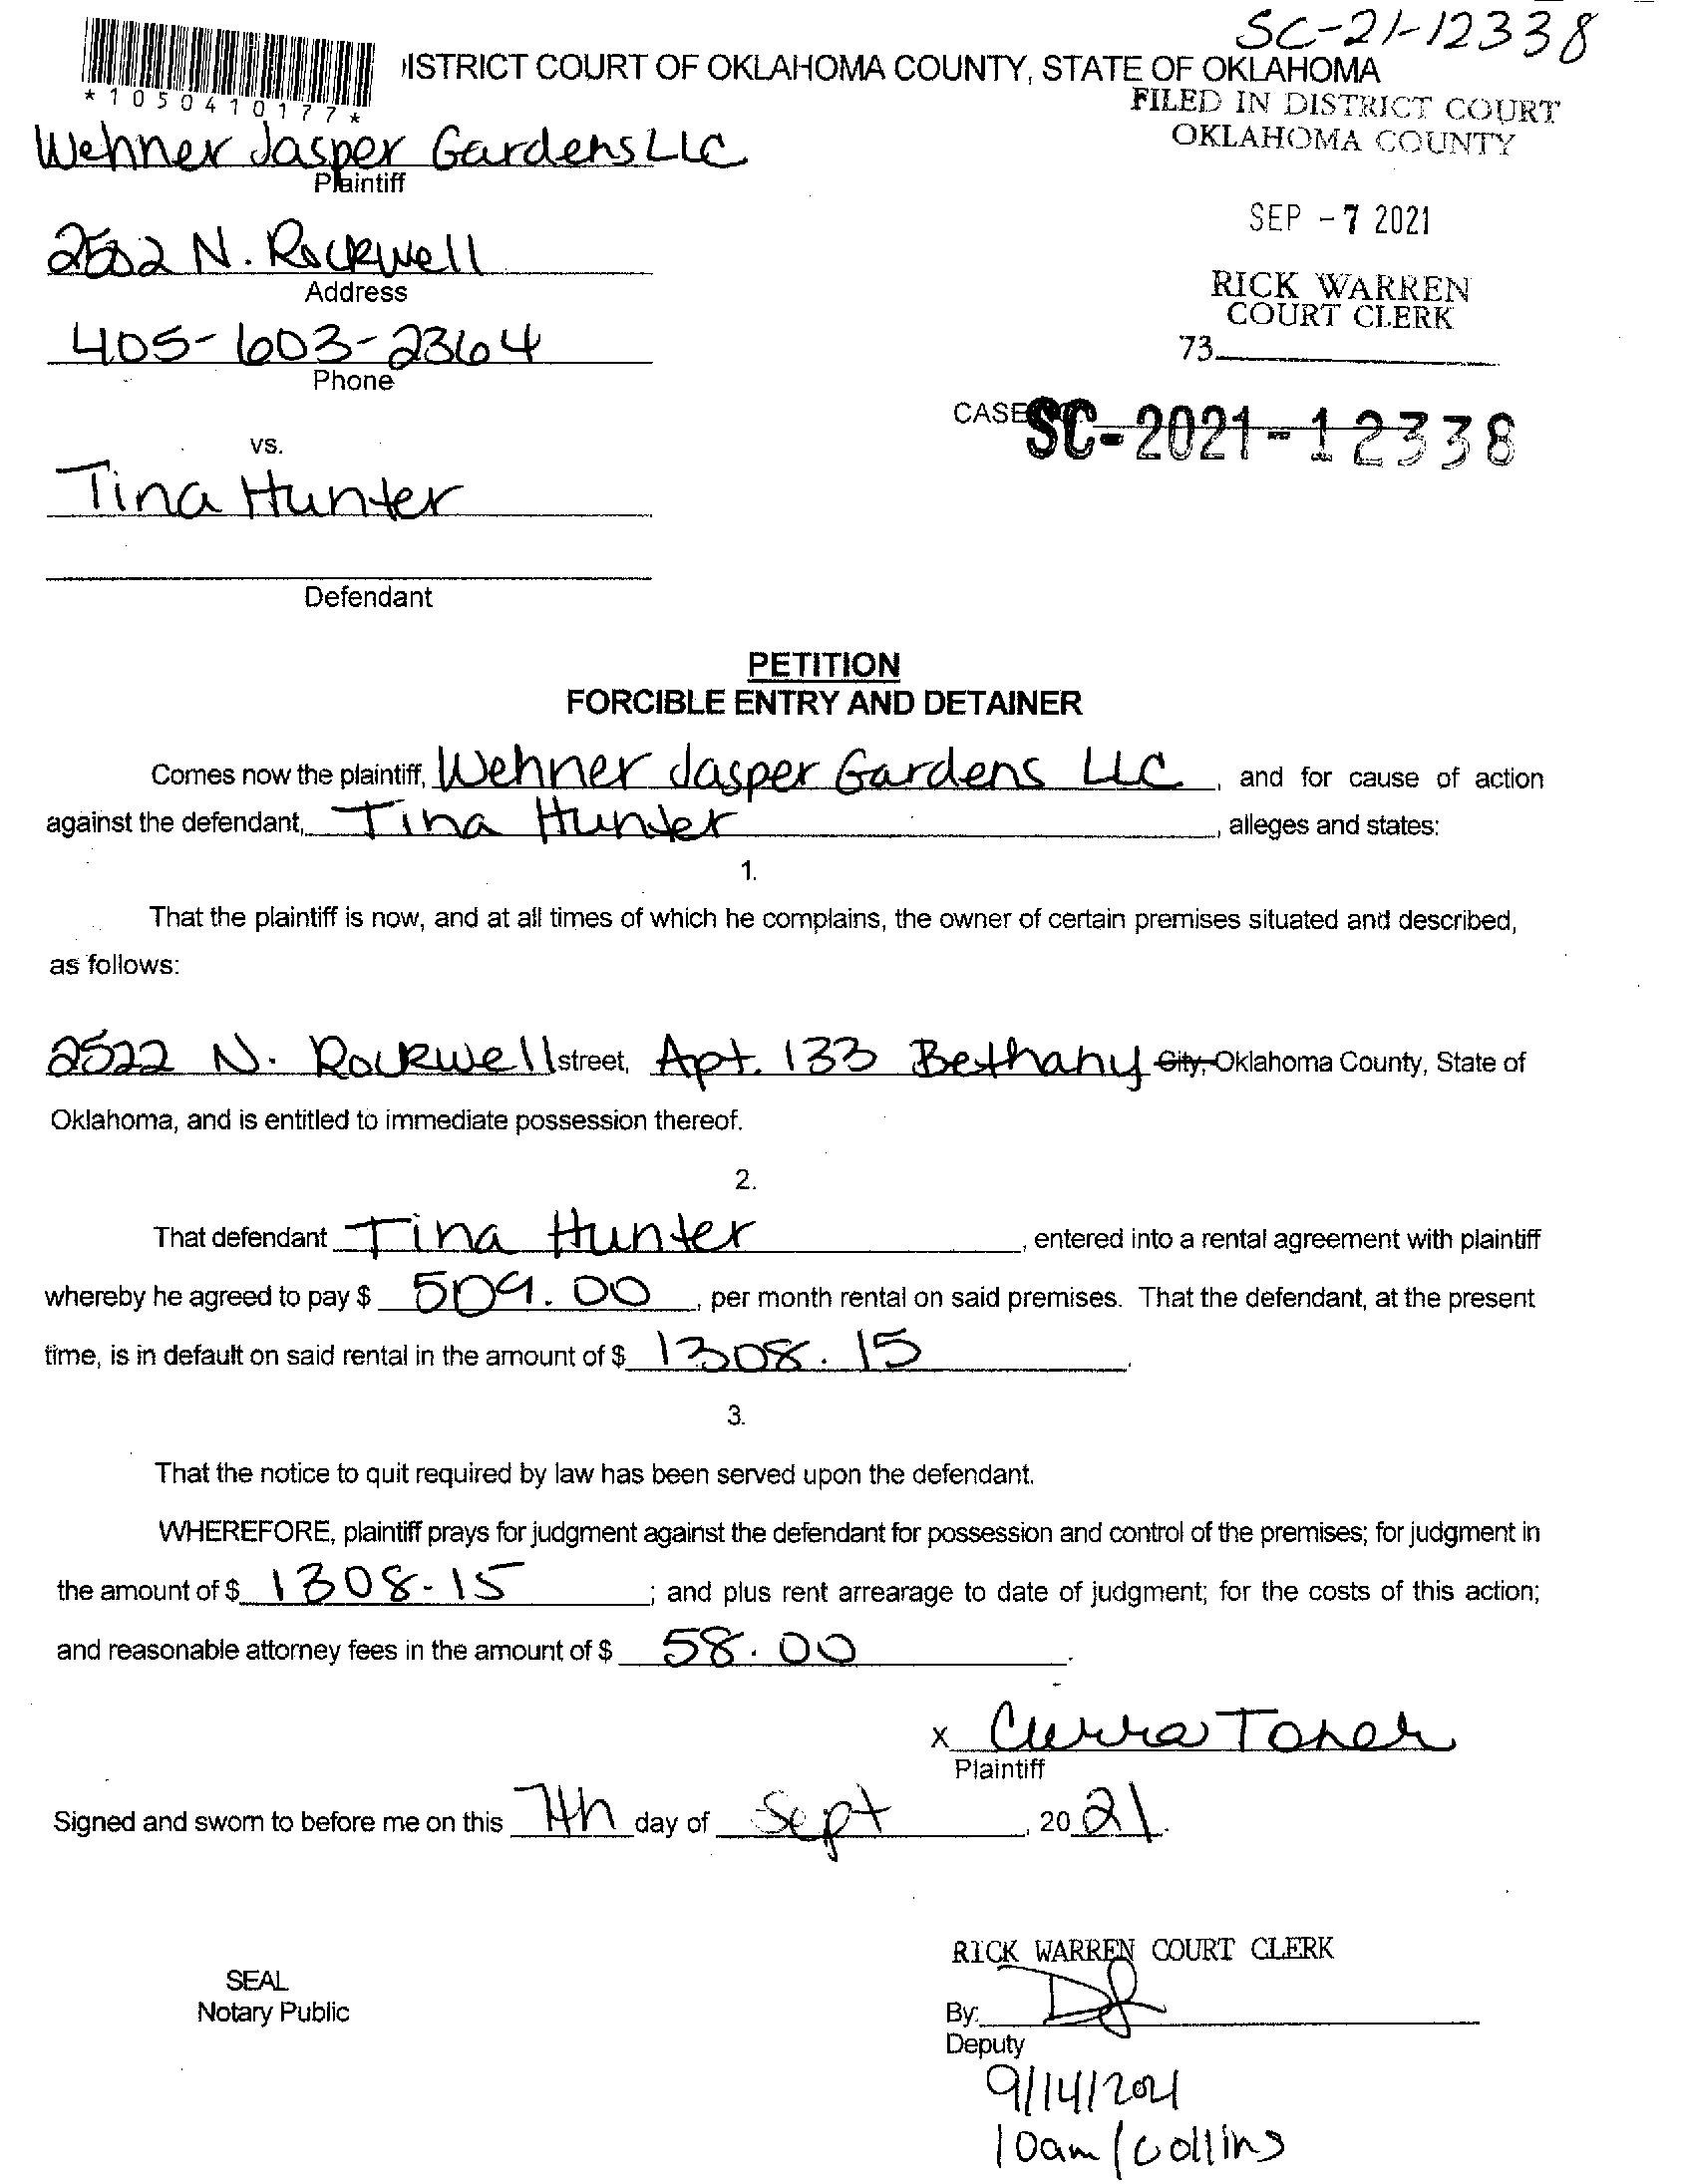 SC-21-12338
ISTRICT COURT OF OKLAHOMA COUNTY, STATE OF OKLAHOMA
*1050410177*
FILED IN DISTRICT COURT
OKLAHOMA COUNTY
Wehner Jasper Gardens LLC
Plaintiff
SEP -7 2021
N. Rockwell
Address
RICK WARREN
COURT CLERK
405-603-2364
Phone
73
CASE SC-2021-12338
vs.
Tina Hunter
Defendant
PETITION
FORCIBLE ENTRY AND DETAINER
Comes now the plaintiff, Wehner Jasper Gardens LLC, and for cause of action
against the defendant, Tina Hunter, alleges and states:
1.
That the plaintiff is now, and at all times of which he complains, the owner of certain premises situated and described,
as follows:
2522 N. Rockwell street, Apt. 133 Bethany City, Oklahoma County, State of
Oklahoma, and is entitled to immediate possession thereof.
2.
That defendant Tina Hunter, entered into a rental agreement with plaintiff
whereby he agreed to pay $ 509.00, per month rental on said premises. That the defendant, at the present
time, is in default on said rental in the amount of $ 1308.15.
3.
That the notice to quit required by law has been served upon the defendant.
WHEREFORE, plaintiff prays for judgment against the defendant for possession and control of the premises; for judgment in
the amount of $ 1308.15; and plus rent arrearage to date of judgment; for the costs of this action;
and reasonable attorney fees in the amount of $ 58.00.
x Curra Toner
Plaintiff
Signed and sworn to before me on this 7th day of Sept, 2021.
RICK WARREN COURT CLERK
SEAL
Notary Public
By:
Deputy
9/14/2021
10am/Collins